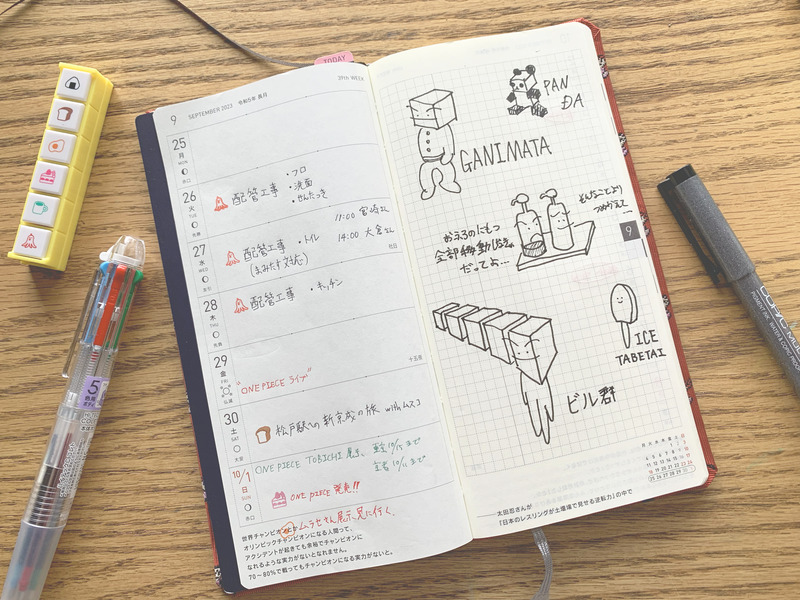 TODAY
9 SEPTEMBER 2023 令和5年 長月
39th WEEK
25
月
MON
26
火
TUE
配管工事
・フロ
・洗面
・せんたっき
27
水
WED
配管工事
・トイレ
11:00 宮崎さん
14:00 大倉さん
28
木
THU
配管工事
・キッチン
29
金
FRI
十五夜
"ONE PIECE ライブ"
30
土
SAT
松戸駅への新京成の旅 with ムスコ
10/1
日
SUN
ONE PIECE TOBICHI 展示
10/15まで
10/11まで
ONE PIECE 発売!!
展示、見に行く。
世界チャンピオンとか
オリンピックチャンピオンになる人間って、
アクシデントが起きても余裕でチャンピオンに
なれるような実力がないとなれません。
70〜80%で戦ってもチャンピオンになる実力がないと。
PAN
DA
GANIMATA
おふろのにもつ
全部移動しなきゃ
だってよ…
そんなことより
つめかえて
9
ICE
TABETAI
ビル群
月 火 水 木 金 土 日
1 2 3
4 5 6 7 8 9 10
11 12 13 14 15 16 17
18 19 20 21 22 23 24
25 26 27 28 29 30
——太田忍さんが
『日本のレスリングが土壇場で見せる逆転力』の中で
5
COPIC MULTI
PIGMENT INK